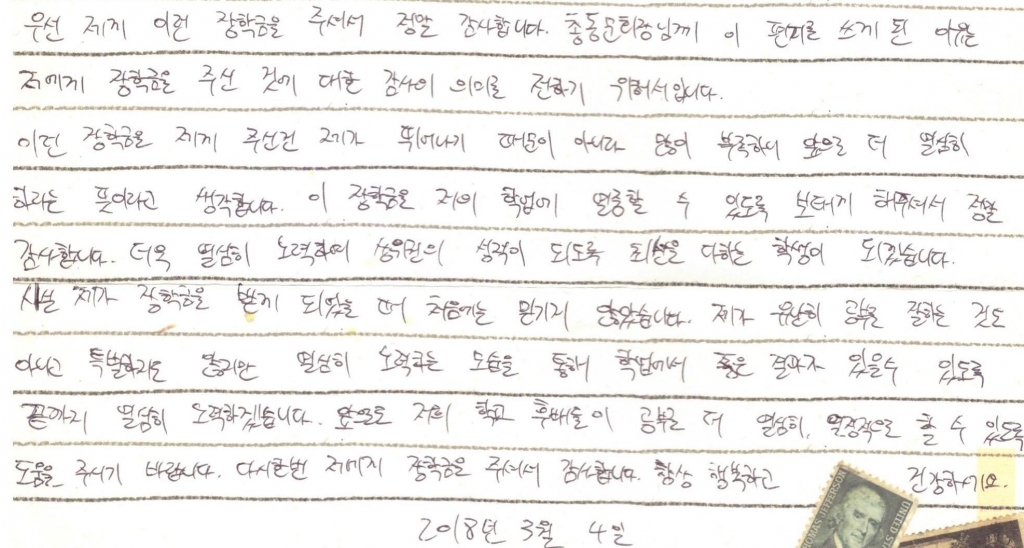 우선 제게 이런 장학금을 주셔서 정말 감사합니다. 총동문회장님께 이 편지를 쓰게 된 이유는
저에게 장학금을 주신 것에 대한 감사의 의미를 전하기 위해서입니다.
이런 장학금을 제게 주신건 제가 뛰어나기 때문이 아니라 많이 부족하니 앞으로 더 열심히
하라는 뜻이라고 생각합니다. 이 장학금을 저의 학업에 열중할 수 있도록 보태게 해주셔서 정말
감사합니다. 더욱 열심히 노력하여 상위권의 성적이 되도록 최선을 다하는 학생이 되겠습니다.
사실 제가 장학금을 받게 되었을 때 처음에는 믿기지 않았습니다. 제가 유난히 공부를 잘하는 것도
아니고 특별하지도 않지만 열심히 노력하는 모습을 통해 학업에서 좋은 결과가 있을수 있도록
끝까지 열심히 노력하겠습니다. 앞으로도 저희 학교 후배들이 공부를 더 열심히, 열정적으로 할 수 있도록
도움을 주시기 바랍니다. 다시한번 저에게 장학금을 주셔서 감사합니다. 항상 행복하고 건강하세요.
2018년 3월 4일
UNITED STATES
JEFFERSON